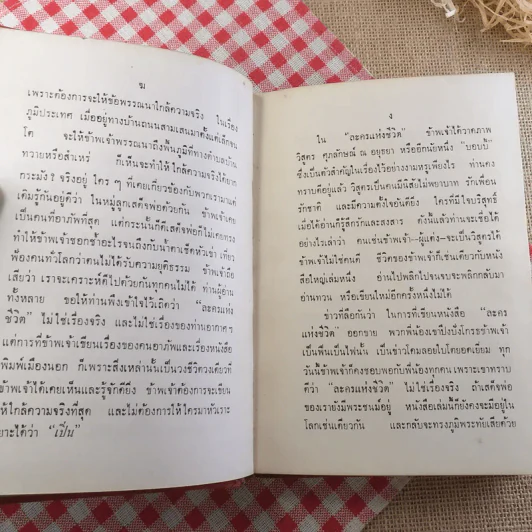 ฆ
เพราะต้องการจะให้ข้อพรรณนาใกล้ความจริง ในเรื่อง
ภูมิประเทศ เมื่ออยู่ทางบ้านถนนสามเสนมาตั้งแต่เล็กจน
โต จะให้ข้าพเจ้าพรรณนาถึงพื้นภูมิที่ทางตำบลบ้าน
ทวายหรือสำเหร่ ก็เห็นจะทำให้ใกล้ความจริงได้ยาก
กระมัง? จริงอยู่ ใคร ๆ ที่เคยเกี่ยวข้องกับพวกเรามาแต่
เดิมรู้กันอยู่ดีว่า ในหมู่ลูกเสด็จพ่อด้วยกัน ข้าพเจ้าเคย
เป็นคนที่อาภัพที่สุด แต่กระนั้นก็ดีเสด็จพ่อก็ไม่เคยทรง
ทำให้ข้าพเจ้าชอกช้ำอะไรจนถึงกับน้ำตาเช็ดหัวเข่า เที่ยว
ฟ้องคนทั่วโลกว่าตนไม่ได้รับความยุติธรรม ข้าพเจ้าถือ
เสียว่า เราจะเคราะห์ดีไปด้วยกันทุกคนไม่ได้ ท่านผู้อ่าน
ทั้งหลาย ขอให้ท่านพึงเข้าใจไว้เถิดว่า “ละครแห่ง
ชีวิต” ไม่ใช่เรื่องจริง และไม่ใช่เรื่องของท่านอากาศฯ
แต่การที่ข้าพเจ้าเขียนเรื่องของคนอาภัพและเรื่องหนังสือ
พิมพ์เมืองนอก ก็เพราะสิ่งเหล่านั้นเป็นวงชีวิตวงเดียวที่
ข้าพเจ้าได้เคยเห็นและรู้จักดียิ่ง ข้าพเจ้าต้องการจะเขียน
ให้ใกล้ความจริงที่สุด และไม่ต้องการให้ใครมาหัวเราะ
เยาะได้ว่า “เปิ่น”
ง
ใน “ละครแห่งชีวิต” ข้าพเจ้าได้วาดภาพ
วิสูตร ศุภลักษณ์ ณ อยุธยา หรืออีกนัยหนึ่ง “บอบบี้”
ซึ่งเป็นตัวสำคัญในเรื่องไว้อย่างงามหรูเพียงไร ท่านคง
ทราบดีอยู่แล้ว วิสูตรเป็นคนมีนิสัยไม่พยาบาท รักเพื่อน
รักชาติ และมีความตั้งใจอันดียิ่ง ใครที่มีใจบริสุทธิ์
เมื่อได้อ่านก็รู้สึกรักและสงสาร ดั่งนั้นแล้วท่านจะเชื่อได้
อย่างไรเล่าว่า คนเช่นข้าพเจ้า--ผู้แต่ง--จะเป็นวิสูตรได้
ข้าพเจ้าไม่ใช่คนดี ชีวิตของข้าพเจ้าก็เช่นเดียวกับหนัง
สือใหญ่เล่มหนึ่ง อ่านไปพลิกไปจนจบจะพลิกกลับมา
อ่านทวน หรือเขียนใหม่อีกครั้งหนึ่งไม่ได้
ข่าวที่ลือกันว่า ในการที่เขียนหนังสือ “ละคร
แห่งชีวิต” ออกขาย พวกพี่น้องเขาปึงปังโกรธข้าพเจ้า
เป็นฟืนเป็นไฟนั้น เป็นข่าวโคมลอยไปโดยอดเยี่ยม ทุก
วันนี้ข้าพเจ้ายังคงชอบพอกับพี่น้องทุกคน เพราะเขาทราบ
ดีว่า “ละครแห่งชีวิต” ไม่ใช่เรื่องจริง ถ้าเสด็จพ่อ
ของเรายังมีพระชนม์อยู่ หนังสือเล่มนี้ก็ยังคงจะมีอยู่ใน
โลกเช่นเดียวกัน และกลับจะทรงภูมิพระทัยเสียด้วย